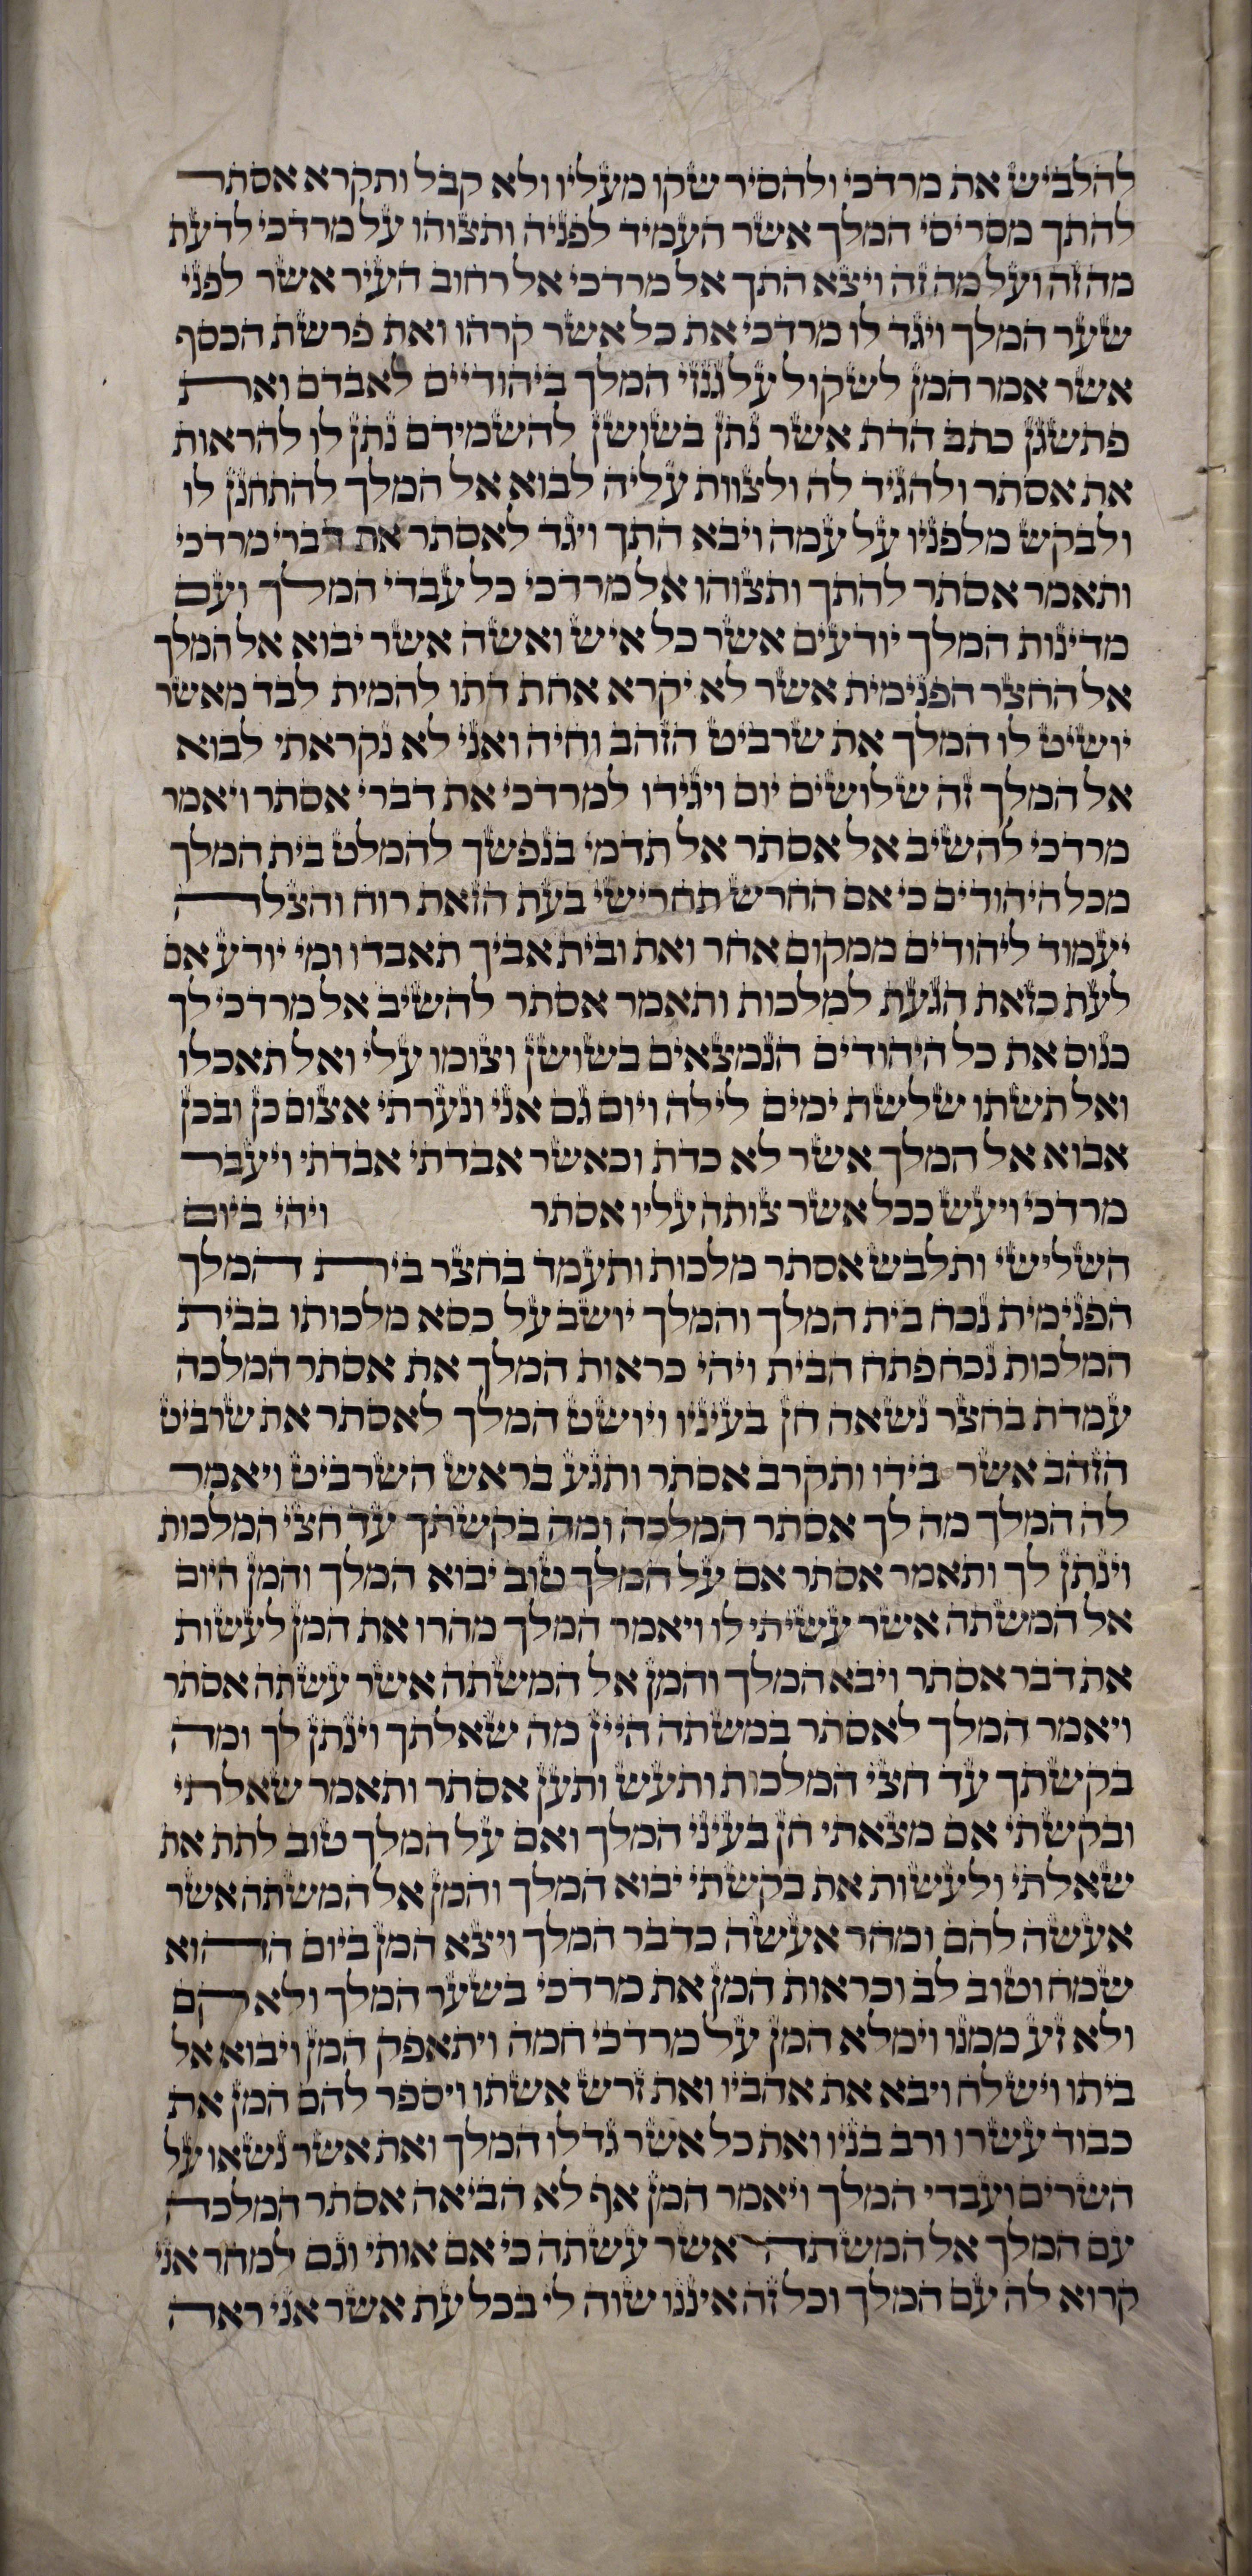 להלביש את מרדכי ולהסיר שקו מעליו ולא קבל ותקרא אסתר
להתך מסריסי המלך אשר העמיד לפניה ותצוהו על מרדכי לדעת
מה זה ועל מה זה ויצא התך אל מרדכי אל רחוב העיר אשר לפני
שער המלך ויגד לו מרדכי את כל אשר קרהו ואת פרשת הכסף
אשר אמר המן לשקול על גנזי המלך ביהודיים לאבדם ואת
פתשגן כתב הדת אשר נתן בשושן להשמידם נתן לו להראות
את אסתר ולהגיד לה ולצוות עליה לבוא אל המלך להתחנן לו
ולבקש מלפניו על עמה ויבא התך ויגד לאסתר את דברי מרדכי
ותאמר אסתר להתך ותצוהו אל מרדכי כל עבדי המלך ועם
מדינות המלך יודעים אשר כל איש ואשה אשר יבוא אל המלך
אל החצר הפנימית אשר לא יקרא אחת דתו להמית לבד מאשר
יושיט לו המלך את שרביט הזהב וחיה ואני לא נקראתי לבוא
אל המלך זה שלושים יום ויגידו למרדכי את דברי אסתר ויאמר
מרדכי להשיב אל אסתר אל תדמי בנפשך להמלט בית המלך
מכל היהודים כי אם החרש תחרישי בעת הזאת רוח והצלה
יעמוד ליהודים ממקום אחר ואת ובית אביך תאבדו ומי יודע אם
לעת כזאת הגעת למלכות ותאמר אסתר להשיב אל מרדכי לך
כנוס את כל היהודים הנמצאים בשושן וצומו עלי ואל תאכלו
ואל תשתו שלשת ימים לילה ויום גם אני ונערתי אצום כן ובכן
אבוא אל המלך אשר לא כדת וכאשר אבדתי אבדתי ויעבר
מרדכי ויעש ככל אשר צותה עליו אסתר ויהי ביום
השלישי ותלבש אסתר מלכות ותעמד בחצר בית המלך
הפנימית נכח בית המלך והמלך יושב על כסא מלכותו בבית
המלכות נכח פתח הבית ויהי כראות המלך את אסתר המלכה
עמדת בחצר נשאה חן בעיניו ויושט המלך לאסתר את שרביט
הזהב אשר בידו ותקרב אסתר ותגע בראש השרביט ויאמר
לה המלך מה לך אסתר המלכה ומה בקשתך עד חצי המלכות
וינתן לך ותאמר אסתר אם על המלך טוב יבוא המלך והמן היום
אל המשתה אשר עשיתי לו ויאמר המלך מהרו את המן לעשות
את דבר אסתר ויבא המלך והמן אל המשתה אשר עשתה אסתר
ויאמר המלך לאסתר במשתה היין מה שאלתך וינתן לך ומה
בקשתך עד חצי המלכות ותעש ותען אסתר ותאמר שאלתי
ובקשתי אם מצאתי חן בעיני המלך ואם על המלך טוב לתת את
שאלתי ולעשות את בקשתי יבוא המלך והמן אל המשתה אשר
אעשה להם ומחר אעשה כדבר המלך ויצא המן ביום ההוא
שמח וטוב לב וכראות המן את מרדכי בשער המלך ולא קם
ולא זע ממנו וימלא המן על מרדכי חמה ויתאפק המן ויבוא אל
ביתו וישלח ויבא את אהביו ואת זרש אשתו ויספר להם המן את
כבוד עשרו ורב בניו ואת כל אשר גדלו המלך ואת אשר נשאו על
השרים ועבדי המלך ויאמר המן אף לא הביאה אסתר המלכה
עם המלך אל המשתה אשר עשתה כי אם אותי וגם למחר אני
קרוא לה עם המלך וכל זה איננו שוה לי בכל עת אשר אני ראה